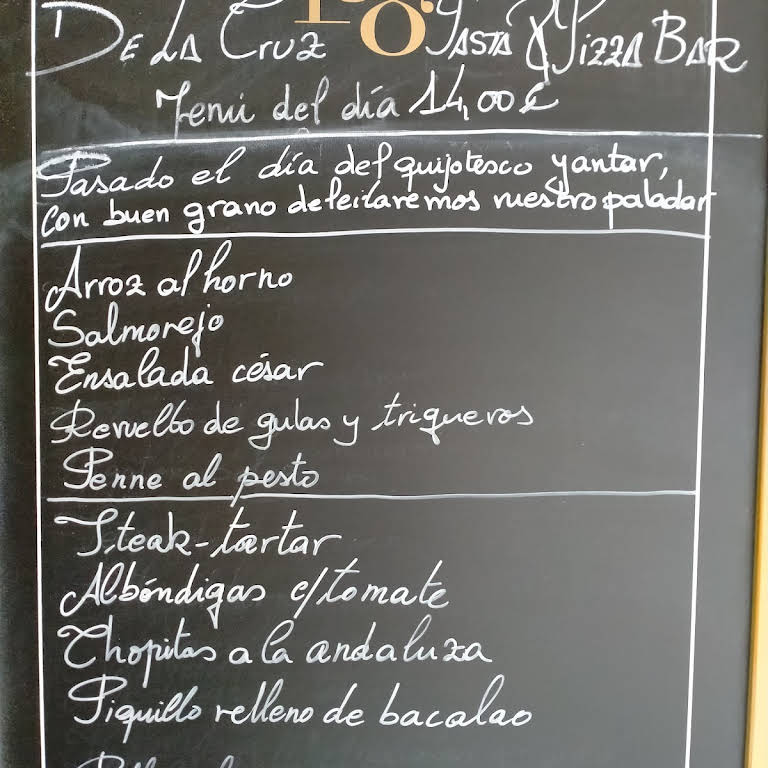 De La Cruz Pasta & Pizza Bar
Menú del día 14,00€
Pasado el día del quijotesco yantar,
con buen grano deleitaremos nuestro paladar
Arroz al horno
Salmorejo
Ensalada césar
Revuelto de gulas y trigueros
Penne al pesto
Steak-tartar
Albóndigas c/tomate
Chopitos a la andaluza
Piquillo relleno de bacalao